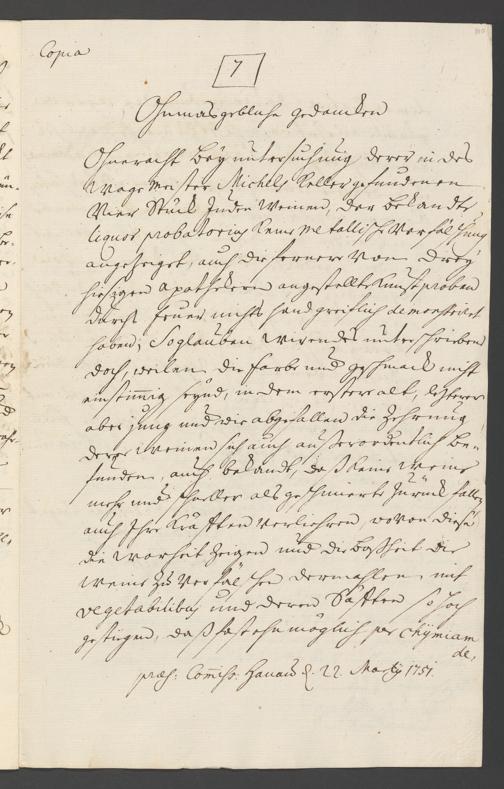 Copia
7
Ohnmasgebliche gedancken
Ohneracht bey untersuchung derer in des
Wagemeister Michels Keller gefundenen
Vier Stück Juden Weinen, der bekandte
liquor probatorius keine metallische Verfälschung
angezeiget, auch die fernere von drey
hiesigen Apothekern angestellte Kunst proben
durch feuer nichts handgreiflich demonstriret
haben; So glauben wir endes unterschrieben
doch, weilen die farbe und geschmack nicht
einstimmig seynd, in dem ersterer alt, letzterer
aber jung und wie abgefallen die Zehrung
derer Weinen sich auch außerordentlich be-
funden, auch bekandt, daß keine Weine
mehr und schneller als geschmierte zurück fallen
auch Ihre Kräfften verliehren, wovon diese
die Warheit zeigen und die Boßheit die
Weine zu Verfälschen dermahlen mit
vegetabilibus und deren Säfften so hoch
gestiegen, daß fast ohnmöglich per Chymiam
de,
præs: Commiss. Hanau d. 22. Martÿ 1751.